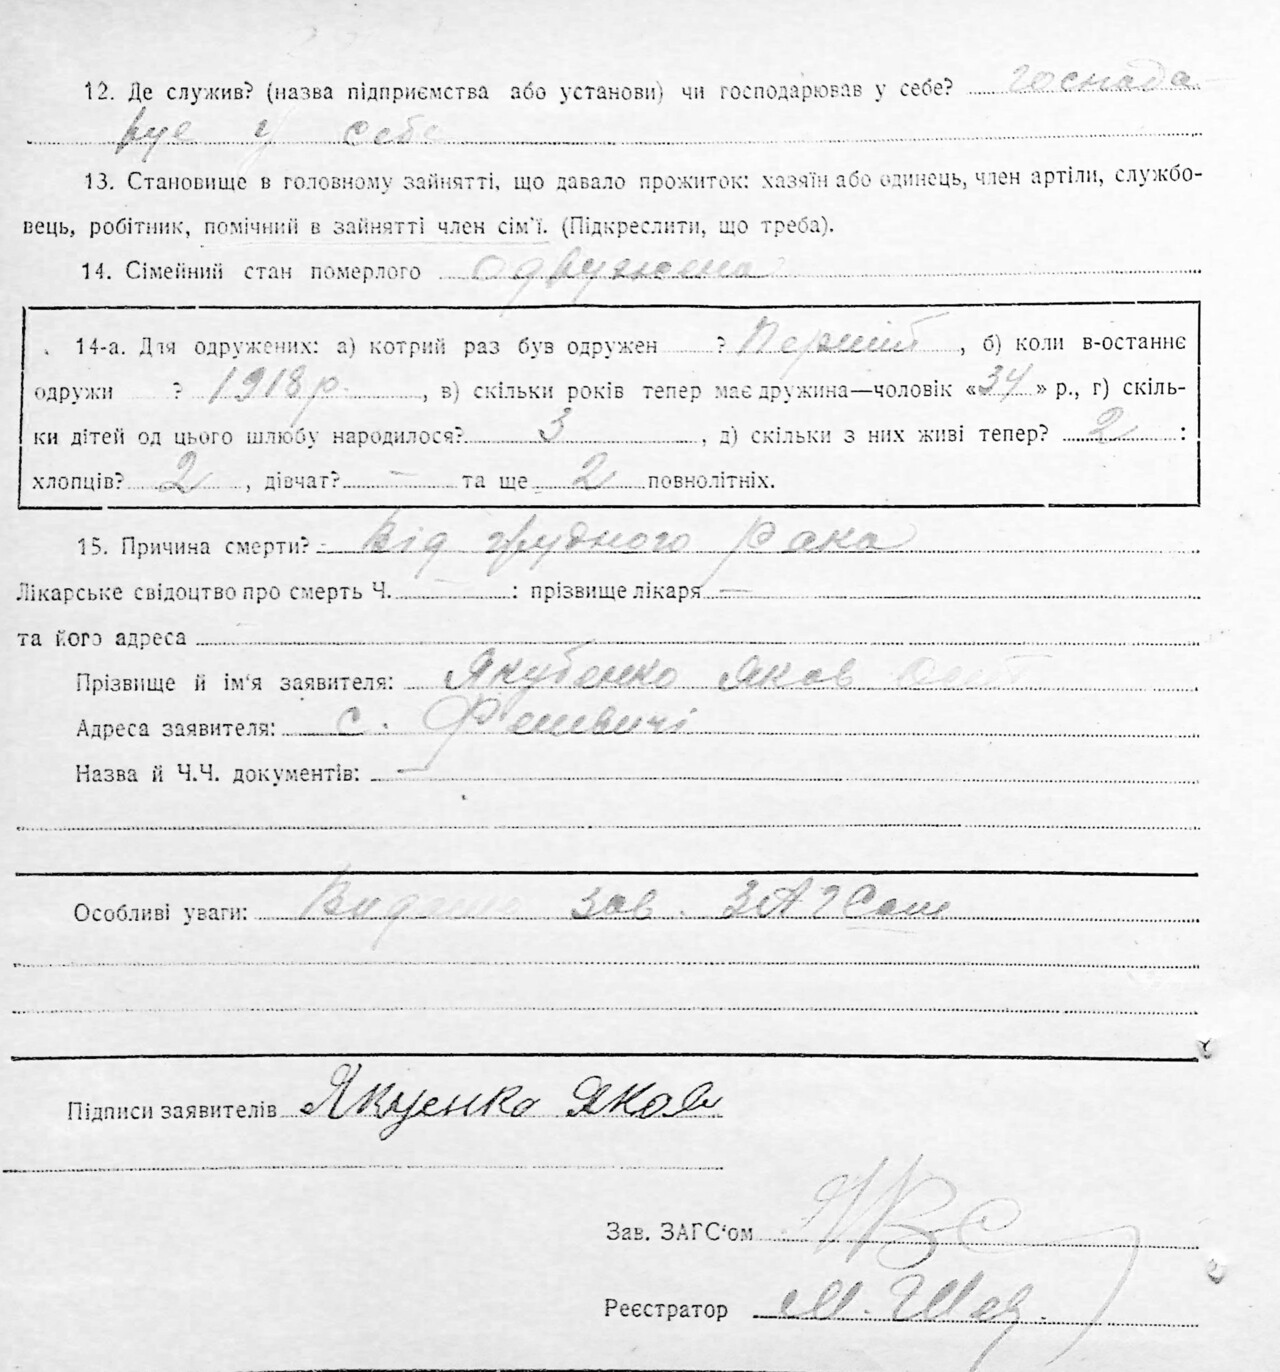 12. Де служив? (назва підприємства або установи) чи господарював у себе? госпада-
рує у себе
13. Становище в головному зайнятті, що давало прожиток: хазяїн або одинець, член артіли, службо-
вець, робітник, помічний в зайнятті член сім'ї. (Підкреслити, що треба).
14. Сімейний стан померлого одружена
14-а. Для одружених: а) котрий раз був одружен ? Перший, б) коли в-останнє
одружи ? 1918 р., в) скільки років тепер має дружина—чоловік «34» р., г) скіль-
ки дітей од цього шлюбу народилося? 3, д) скільки з них живі тепер? 2 :
хлопців? 2, дівчат? — та ще 2 повнолітніх.
15. Причина смерти? Від грудного рака
Лікарське свідоцтво про смерть Ч. — : прізвище лікаря —
та його адреса
Прізвище й ім'я заявителя: Якубенко Яков
Адреса заявителя: с.
Назва й Ч.Ч. документів: —
Особливі уваги: Видано зав. ЗАГСом
Підписи заявителів Якуенко Яков
Зав. ЗАГС'ом
Реєстратор М.